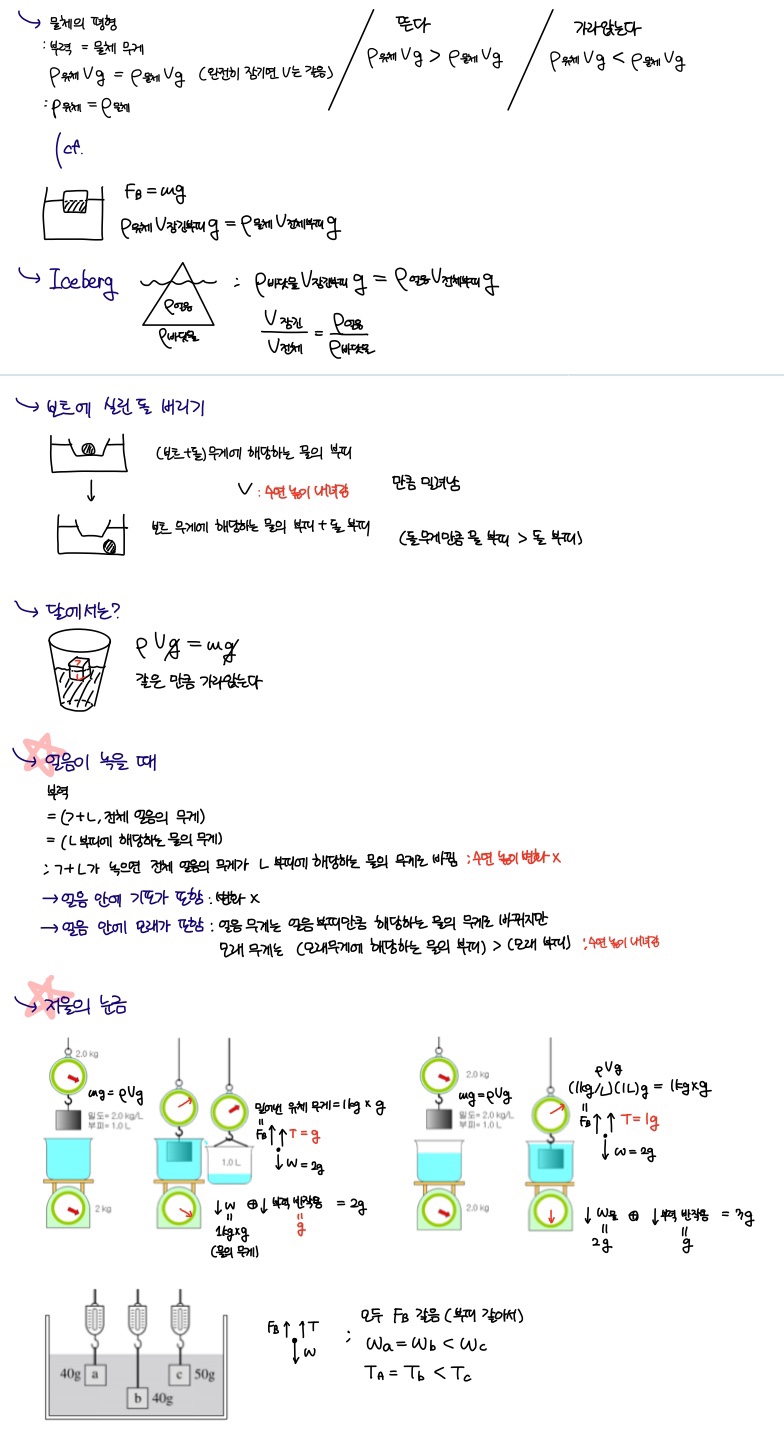 물체의 평형
: 부력 = 물체 무게
ρ유체 Vg = ρ물체 Vg (완전히 잠기면 V는 같음)
: ρ유체 = ρ물체
뜬다
ρ유체 Vg > ρ물체 Vg
가라앉는다
ρ유체 Vg < ρ물체 Vg
(cf.
F_B = mg
ρ유체 V잠긴부피 g = ρ물체 V전체부피 g
Iceberg
ρ얼음
ρ바닷물
: ρ바닷물 V잠긴부피 g = ρ얼음 V전체부피 g
V잠긴/V전체 = ρ얼음/ρ바닷물
보트에 실린 돌 버리기
(보트+돌)무게에 해당하는 물의 부피
V : 수면 높이 내려감
만큼 밀려남
보트 무게에 해당하는 물의 부피 + 돌 부피
(돌무게만큼 물 부피 > 돌 부피)
달에서는?
ㄱ
ㄴ
ρVg = mg
같은 만큼 가라앉는다
얼음이 녹을 때
부력
= (ㄱ+ㄴ, 전체 얼음의 무게)
= (ㄴ 부피에 해당하는 물의 무게)
: ㄱ+ㄴ가 녹으면 전체 얼음의 무게가 ㄴ 부피에 해당하는 물의 무게로 바뀜 ; 수면 높이 변화 x
→ 얼음 안에 기포가 포함 : 변화 x
→ 얼음 안에 모래가 포함 : 얼음 무게는 얼음 부피만큼 해당하는 물의 무게로 바뀌지만
모래 무게는 (모래무게에 해당하는 물의 부피) > (모래 부피) ; 수면 높이 내려감
저울의 눈금
2.0 kg
mg = ρVg
밀도= 2.0 kg/L
부피= 1.0 L
2 kg
1.0 L
밀어낸 유체 무게 = 1kg × g
=
F_B ↑↑ T = g
↓ W = 2g
↓W ⊕ ↓부력 반작용 = 2g
=
1kg×g
(물의 무게)
=
g
2.0 kg
mg = ρVg
밀도= 2.0 kg/L
부피= 1.0 L
2.0 kg
ρVg
(1kg/L)(1L)g = 1kg×g
=
F_B ↑↑ T = 1g
↓ W = 2g
↓W물 ⊕ ↓부력 반작용 = 3g
=
2g
=
g
40g a
b 40g
c 50g
F_B ↑ ↑T
↓W
; 모두 F_B 같음 (부피 같아서)
W_a = W_b < W_c
T_A = T_b < T_c